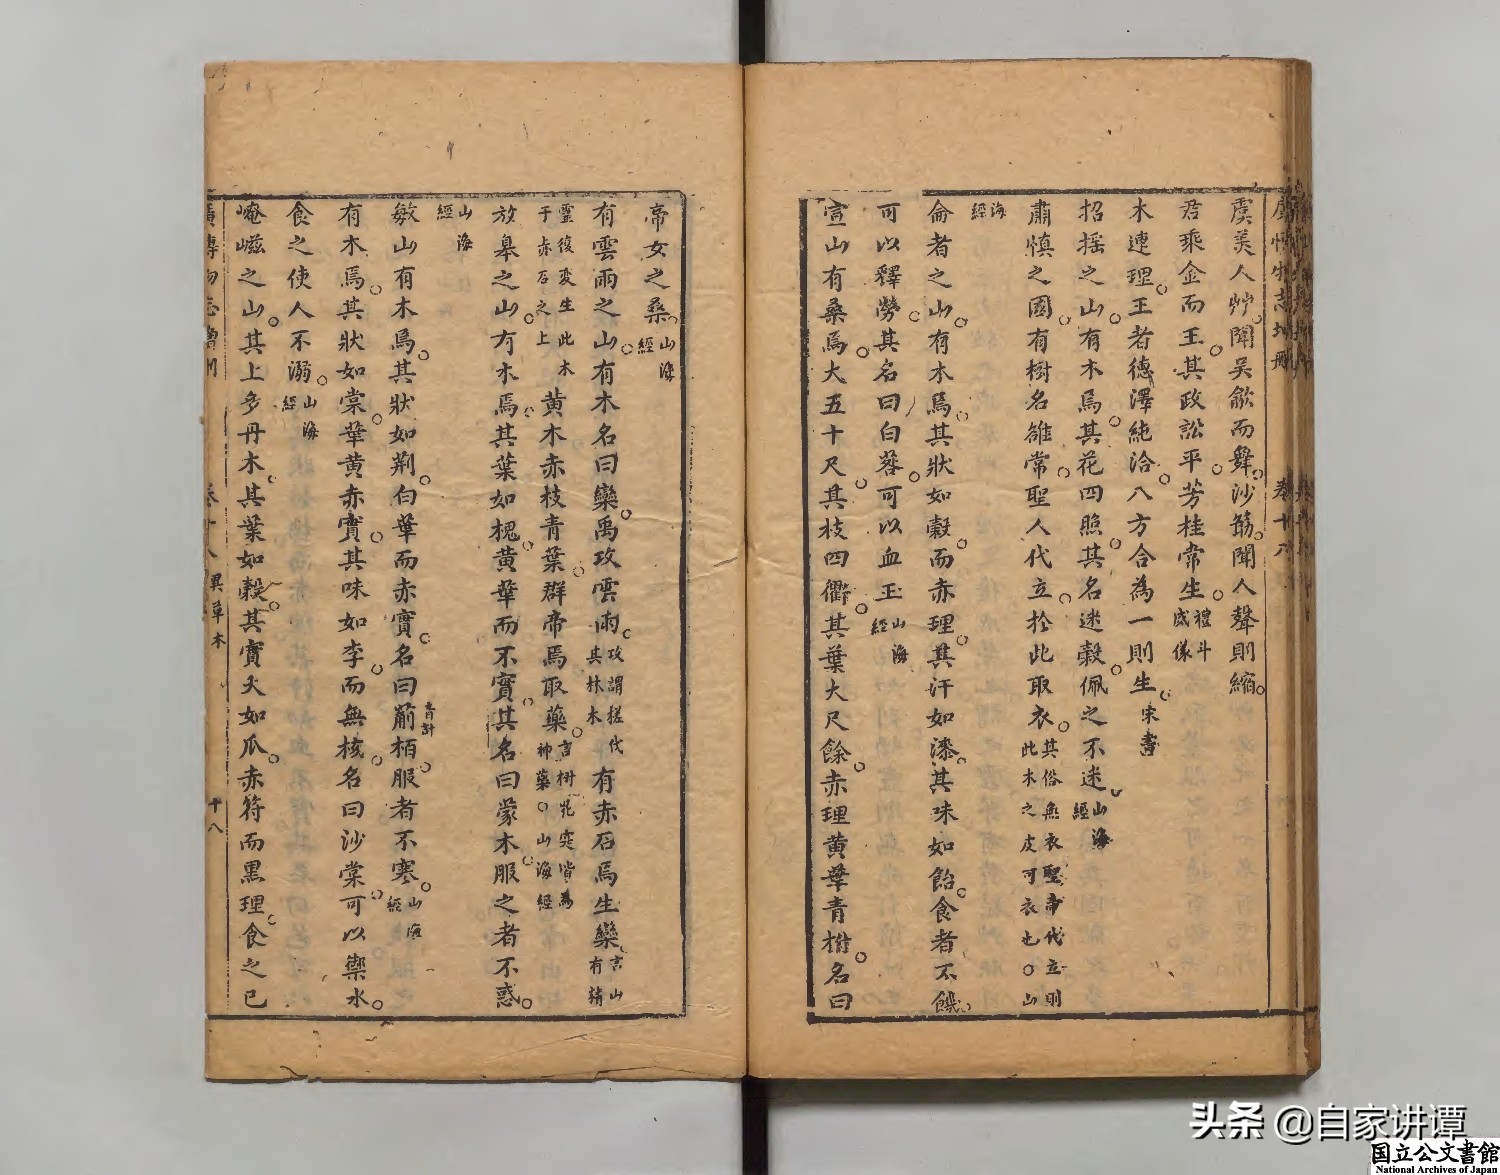 虞美人艸聞吳歈而舞沙蒻聞人聲則縮
君乘金而王其政訟平芳桂常生禮斗威儀
木連理王者德澤純洽八方合為一則生宋書
招搖之山有木焉其花四照其名迷穀佩之不迷山海經
肅慎之國有樹名雒常聖人代立於此取衣其俗無衣聖帝代立則此木之皮可衣也○山海經
侖者之山有木焉其狀如穀而赤理其汗如漆其味如飴食者不饑
可以釋勞其名曰白䓘可以血玉山海經
宣山有桑焉大五十尺其枝四衢其葉大尺餘赤理黃華青柎名曰
帝女之桑山海經
有雲雨之山有木名曰欒禹攻雲雨攻謂槎伐其林木有赤石焉生欒言山有精
靈復變生此木于赤石之上黃木赤枝青葉群帝焉取藥言樹花實皆為神藥○山海經
放皋之山有木焉其葉如槐黃華而不實其名曰蒙木服之者不惑
山海經
敏山有木焉其狀如荆白華而赤實名曰葪音計栢服者不寒山海經
有木焉其狀如棠華黃赤實其味如李而無核名曰沙棠可以禦水
食之使人不溺山海經
崦嵫之山其上多丹木其葉如穀其實大如瓜赤符而黑理食之已
廣博物志 卷十八 異草木 十八
头条 @自家讲谭
国立公文書館
National Archives of Japan